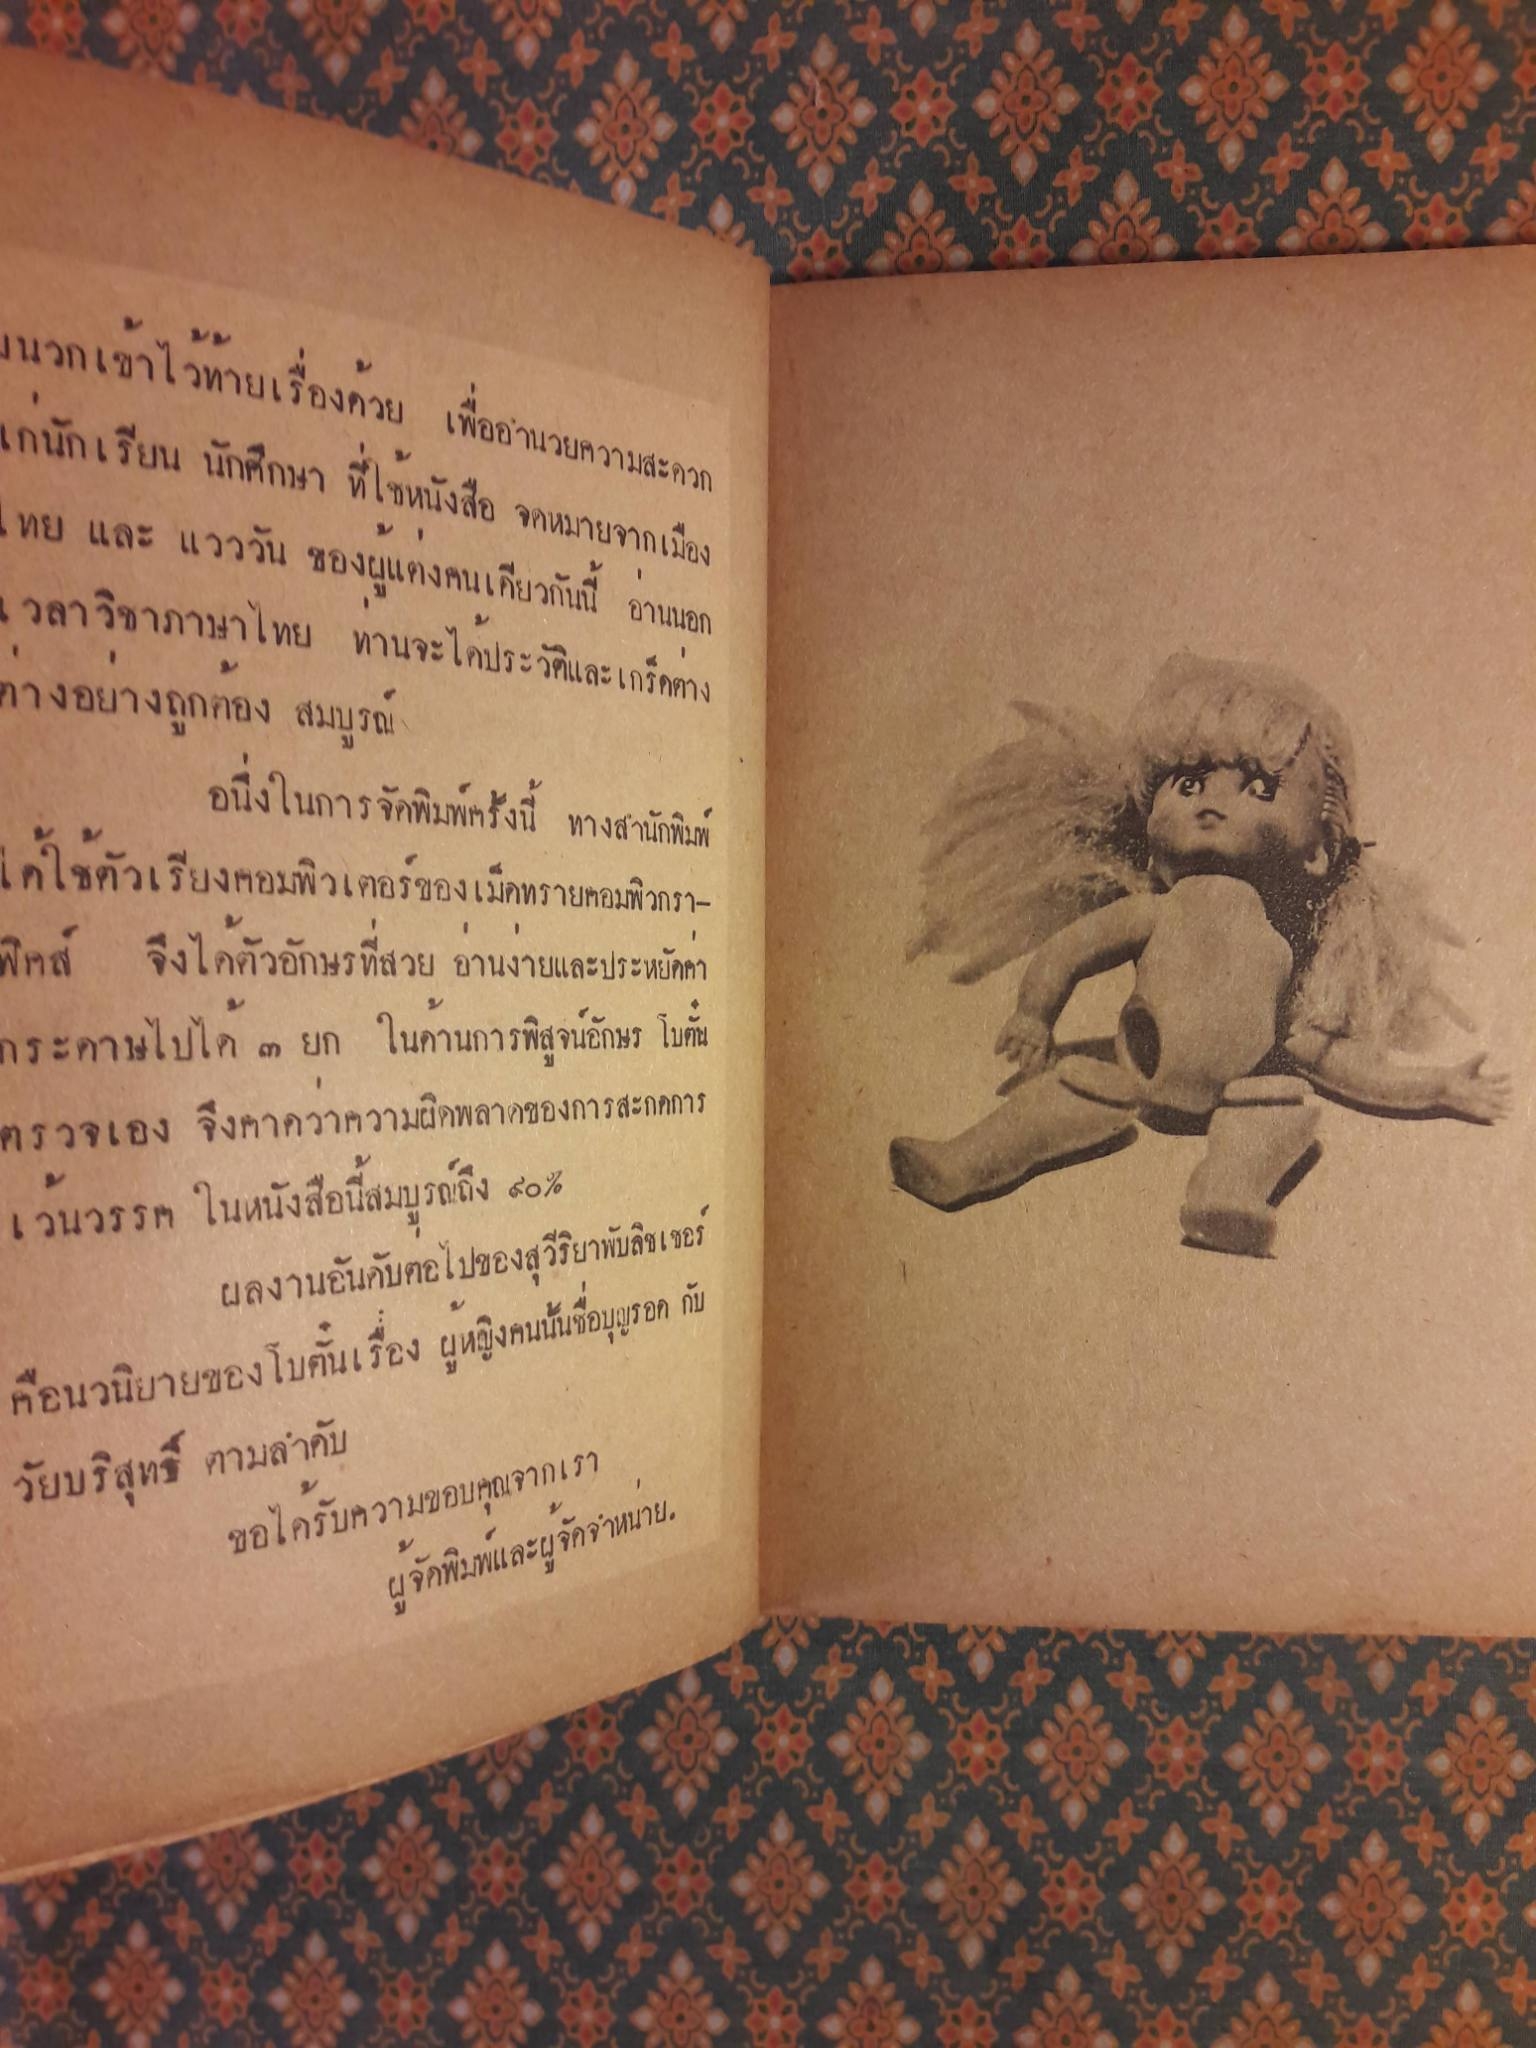 ผนวกเข้าไว้ท้ายเรื่องด้วย เพื่ออำนวยความสะดวก
แก่นักเรียน นักศึกษา ที่ใช้หนังสือ จดหมายจากเมือง
ไทย และ แวววัน ของผู้แต่งคนเดียวกันนี้ อ่านนอก
เวลาวิชาภาษาไทย ท่านจะได้ประวัติและเกร็ดต่าง
ต่างอย่างถูกต้อง สมบูรณ์
อนึ่งในการจัดพิมพ์ครั้งนี้ ทางสำนักพิมพ์
ได้ใช้ตัวเรียงคอมพิวเตอร์ของเม็ดทรายคอมพิวกรา-
ฟิคส์ จึงได้ตัวอักษรที่สวย อ่านง่ายและประหยัดค่า
กระดาษไปได้ ๓ ยก ในด้านการพิสูจน์อักษร โบตั๋น
ตรวจเอง จึงคาดว่าความผิดพลาดของการสะกดการ
เว้นวรรค ในหนังสือนี้สมบูรณ์ถึง ๙๐%
ผลงานอันดับต่อไปของสุวีริยาพับลิชเชอร์
คือนวนิยายของโบตั๋นเรื่อง ผู้หญิงคนนั้นชื่อบุญรอด กับ
วัยบริสุทธิ์ ตามลำดับ
ขอได้รับความขอบคุณจากเรา
ผู้จัดพิมพ์และผู้จัดจำหน่าย.